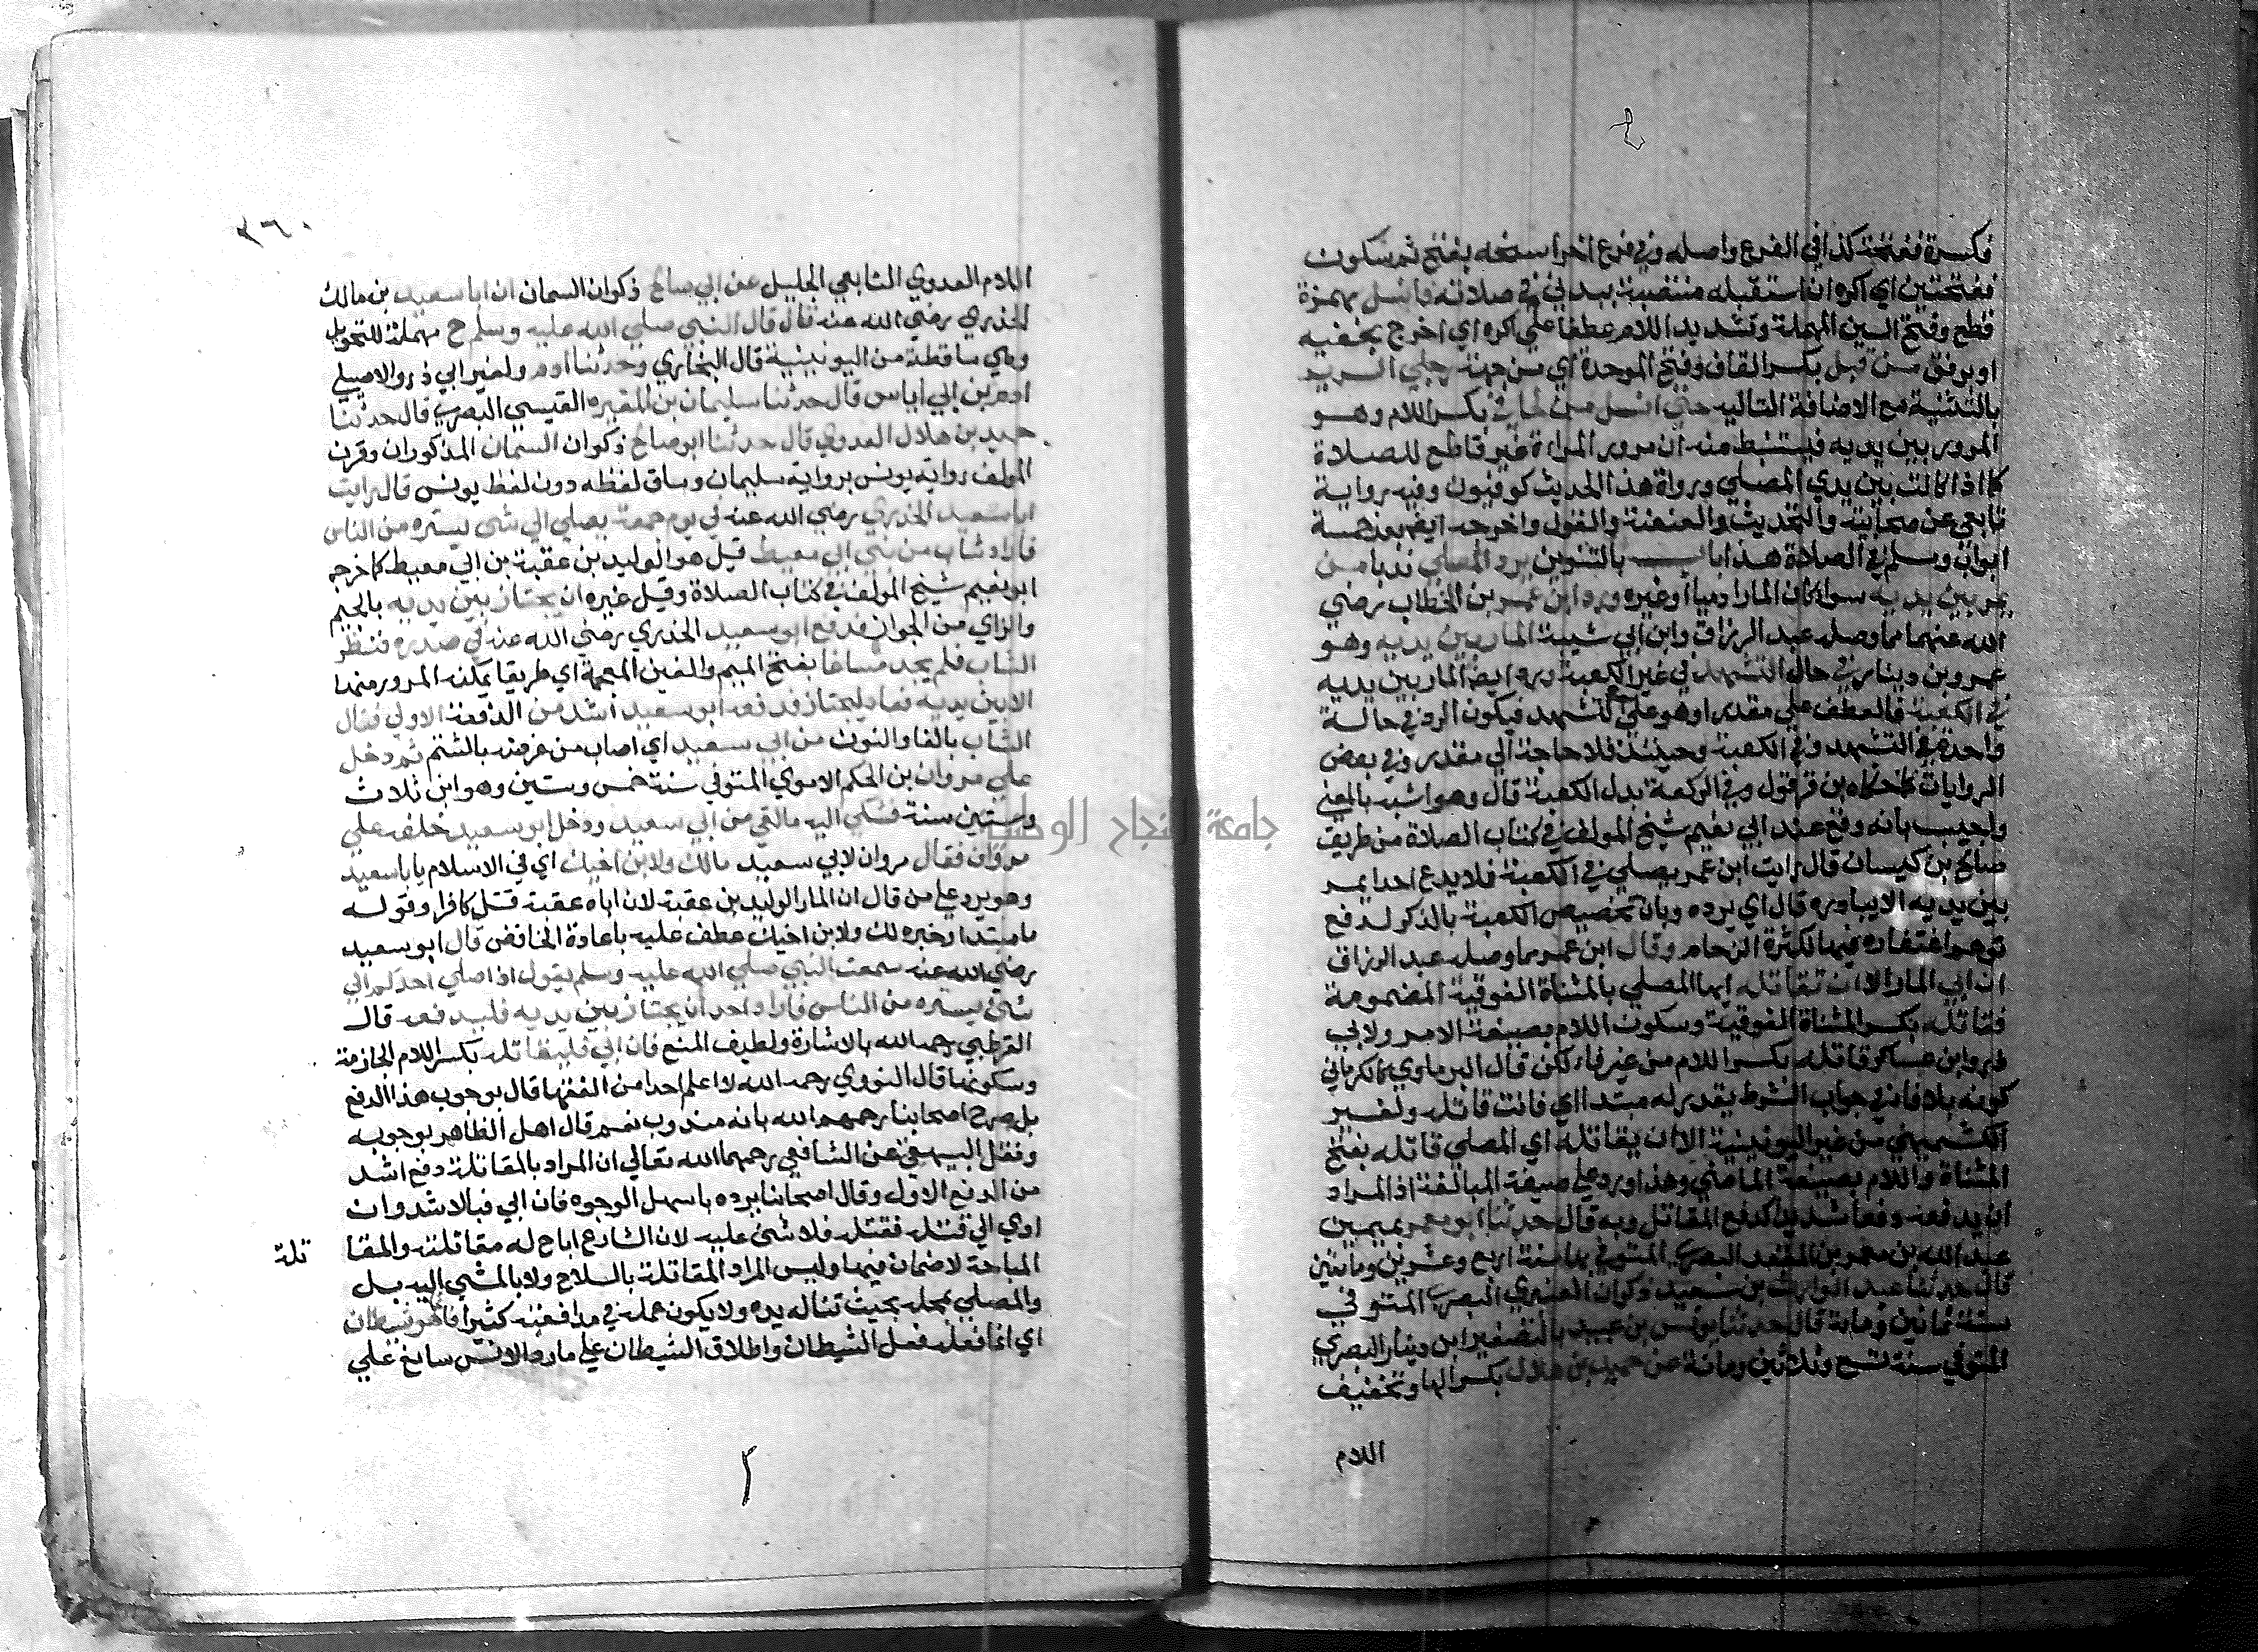 فكسرة ففتحة كذا في الفرع واصله وفي فرع اخر اسنحه بفتح ثم سكون
ففتحتين اي اكره ان استقبله منتصبة ببدني في صلاته فانسل بهمزة
قطع وفتح السين المهملة وتشديد اللام عطفا علي اكره اي اخرج بخفية
او برفق من قبل بكسر القاف وفتح الموحدة اي من جهة رجلي السرير
بالتثنية مع الاضافة التاليه حتي انسل من لحافي بكسر اللام وهو
المرور بين يديه فيستنبط منه ان مرور المراة غير قاطع للصلاة
كما اذا كانت بين يدي المصلي ورواة هذا الحديث كوفيون وفيه رواية
تابعي عن صحابية والتحديث والعنعنة والقول واخرجه ايضا بعد خمسة
ابواب ومسلم في الصلاة هذا باب بالتنوين يرد المصلي ندبا من
مر بين يديه سوا كان المار ادميا او غيره ورد ابن عمر بن الخطاب رضي
الله عنهما مما وصله عبد الرزاق وابن ابي شيبة المار بين يديه وهو
عمرو بن دينار في حال التشهد في غير الكعبة ورد ايضا المار بين يديه
في الكعبة فالعطف علي مقدر او هو علي التشهد فيكون الرد في حالة
واحدة في التشهد وفي الكعبة وحينئذ فلا حاجة الي مقدر وفي بعض
الروايات كما حكاه بن قرقول وفي الركعة بدل الكعبة قال وهو اشبه بالمعني
واجيب بانه وقع عند ابي نعيم شيخ المولف في كتاب الصلاة من طريق
صالح بن كيسان قال رايت ابن عمر يصلي في الكعبة فلا يدع احدا يمر
بين يديه الا يبادره قال اي يرده وبان تخصيص الكعبة بالذكر لدفع
توهم اغتفاره فيها لكثرة الزحام وقال ابن عمر مما وصله عبد الرزاق
ان ابي المار الا ان تقاتله ايها المصلي بالمثناة الفوقية المضمومة
فقاتله بكسر المثناة الفوقية وسكون اللام بصيغة الامر ولابي
ذر وابن عساكر قاتله بكسر اللام من غير فاء لكن قال البرماوي كالكرماني
كونه بلا فا في جواب الشرط بقدير له مبتدا اي فانت قاتله ولغير
الكشميهني من غير اليونينية الا ان يقاتله اي المصلي قاتله بفتح
المثناة واللام بصيغة الماضي وهذا ورد علي صيغة المبالغة اذ المراد
ان يدفعه دفعا شديدا كدفع المقاتل وبه قال حدثنا ابو معمر بميمين
عبد الله بن معمر بن المقعد البصري المتوفي بها سنة اربع وعشرين ومايتين
قال حدثنا عبد الوارث بن سعيد ذكوان العنبري البصري المتوفي
سنة ثمانين وماية قال حدثنا يونس بن عبيد بالتصغير ابن دينار البصري
المتوفي سنة تسع وثلاثين ومائة عن حميد بن هلال بكسر الها وتخفيف
اللام
٢٦٠
اللام العدوي التابعي الجليل عن ابي صالح ذكوان السمان ان ابا سعيد بن مالك
الخدري رضي الله عنه قال قال النبي صلي الله عليه وسلم ح مهملة للتحويل
وهي ساقطة من اليونينية قال البخاري وحدثنا ادم ولغير ابي ذر والاصيلي
ادم بن ابي اياس قال حدثنا سليمان بن المغيره القيسي البصري قال حدثنا
حميد بن هلال العدوي قال حدثنا ابو صالح ذكوان السمان المذكوران وقرن
المولف رواية يونس برواية سليمان وساق لفظه دون لفظ يونس قال رايت
ابا سعيد الخدري رضي الله عنه في يوم جمعة يصلي الي شي يستره من الناس
فاراد شاب من بني ابي معيط قيل هو الوليد بن عقبة بن ابي معيط كما خرجه
ابو نعيم شيخ المولف في كتاب الصلاة وقيل غيره ان يجتاز بين يديه بالجيم
والزاي من الجواز فدفع ابو سعيد الخدري رضي الله عنه في صدره فنظر
الشاب فلم يجد مساغا بفتح الميم والغين المعجمة اي طريقا يمكنه المرور منها
الا بين يديه فعاد ليجتاز فدفعه ابو سعيد اشد من الدفعة الاولي فنال
الشاب بالفا والنون من ابي سعيد اي اصاب من عرضه بالشتم ثم دخل
علي مروان بن الحكم الاموي المتوفي سنة خمس وستين وهو ابن ثلاث
وستين سنة فشكي اليه مالقي من ابي سعيد ودخل ابو سعيد خلفه علي
مروان فقال مروان لابي سعيد مالك ولابن اخيك اي في الاسلام يابا سعيد
وهو يرد علي من قال ان المار الوليد بن عقبة لان اباه عقبة قتل كافرا وقوله
ما مبتدا وخبره لك ولابن اخيك عطف عليه باعادة الخافض قال ابو سعيد
رضي الله عنه سمعت النبي صلي الله عليه وسلم يقول اذا صلي احدكم الي
شئ يستره من الناس فاراد احد ان يجتاز بين يديه فليدفعه قال
القرطبي رحمه الله بالاشارة ولطيف المنع فان ابي فليقاتله بكسر اللام الجازمة
وسكونها قال النووي رحمه الله لا اعلم احدا من الفقها قال بوجوب هذا الدفع
بل صرح اصحابنا رحمهم الله بانه مندوب نعم قال اهل الظاهر بوجوبه
ونقل البيهقي عن الشافعي رحمهما الله تعالي ان المراد بالمقاتلة دفع اشد
من الدفع الاول وقال اصحابنا يرده باسهل الوجوه فان ابي فبالاشد وان
ادي الي قتله فقتله فلا شئ عليه لان الشارع اباح له مقاتلته والمقا
تلة
المباحة لا ضمان فيها وليس المراد المقاتلة بالسلاح ولا بالمشي اليه بل
والمصلي بمحله بحيث تناله يده ولا يكون عمله في مدافعته كثيرا فانما هو شيطان
اي انما فعله فعل الشيطان واطلاق الشيطان علي مارد الانس سائغ علي
جامعة النجاح الوطنية